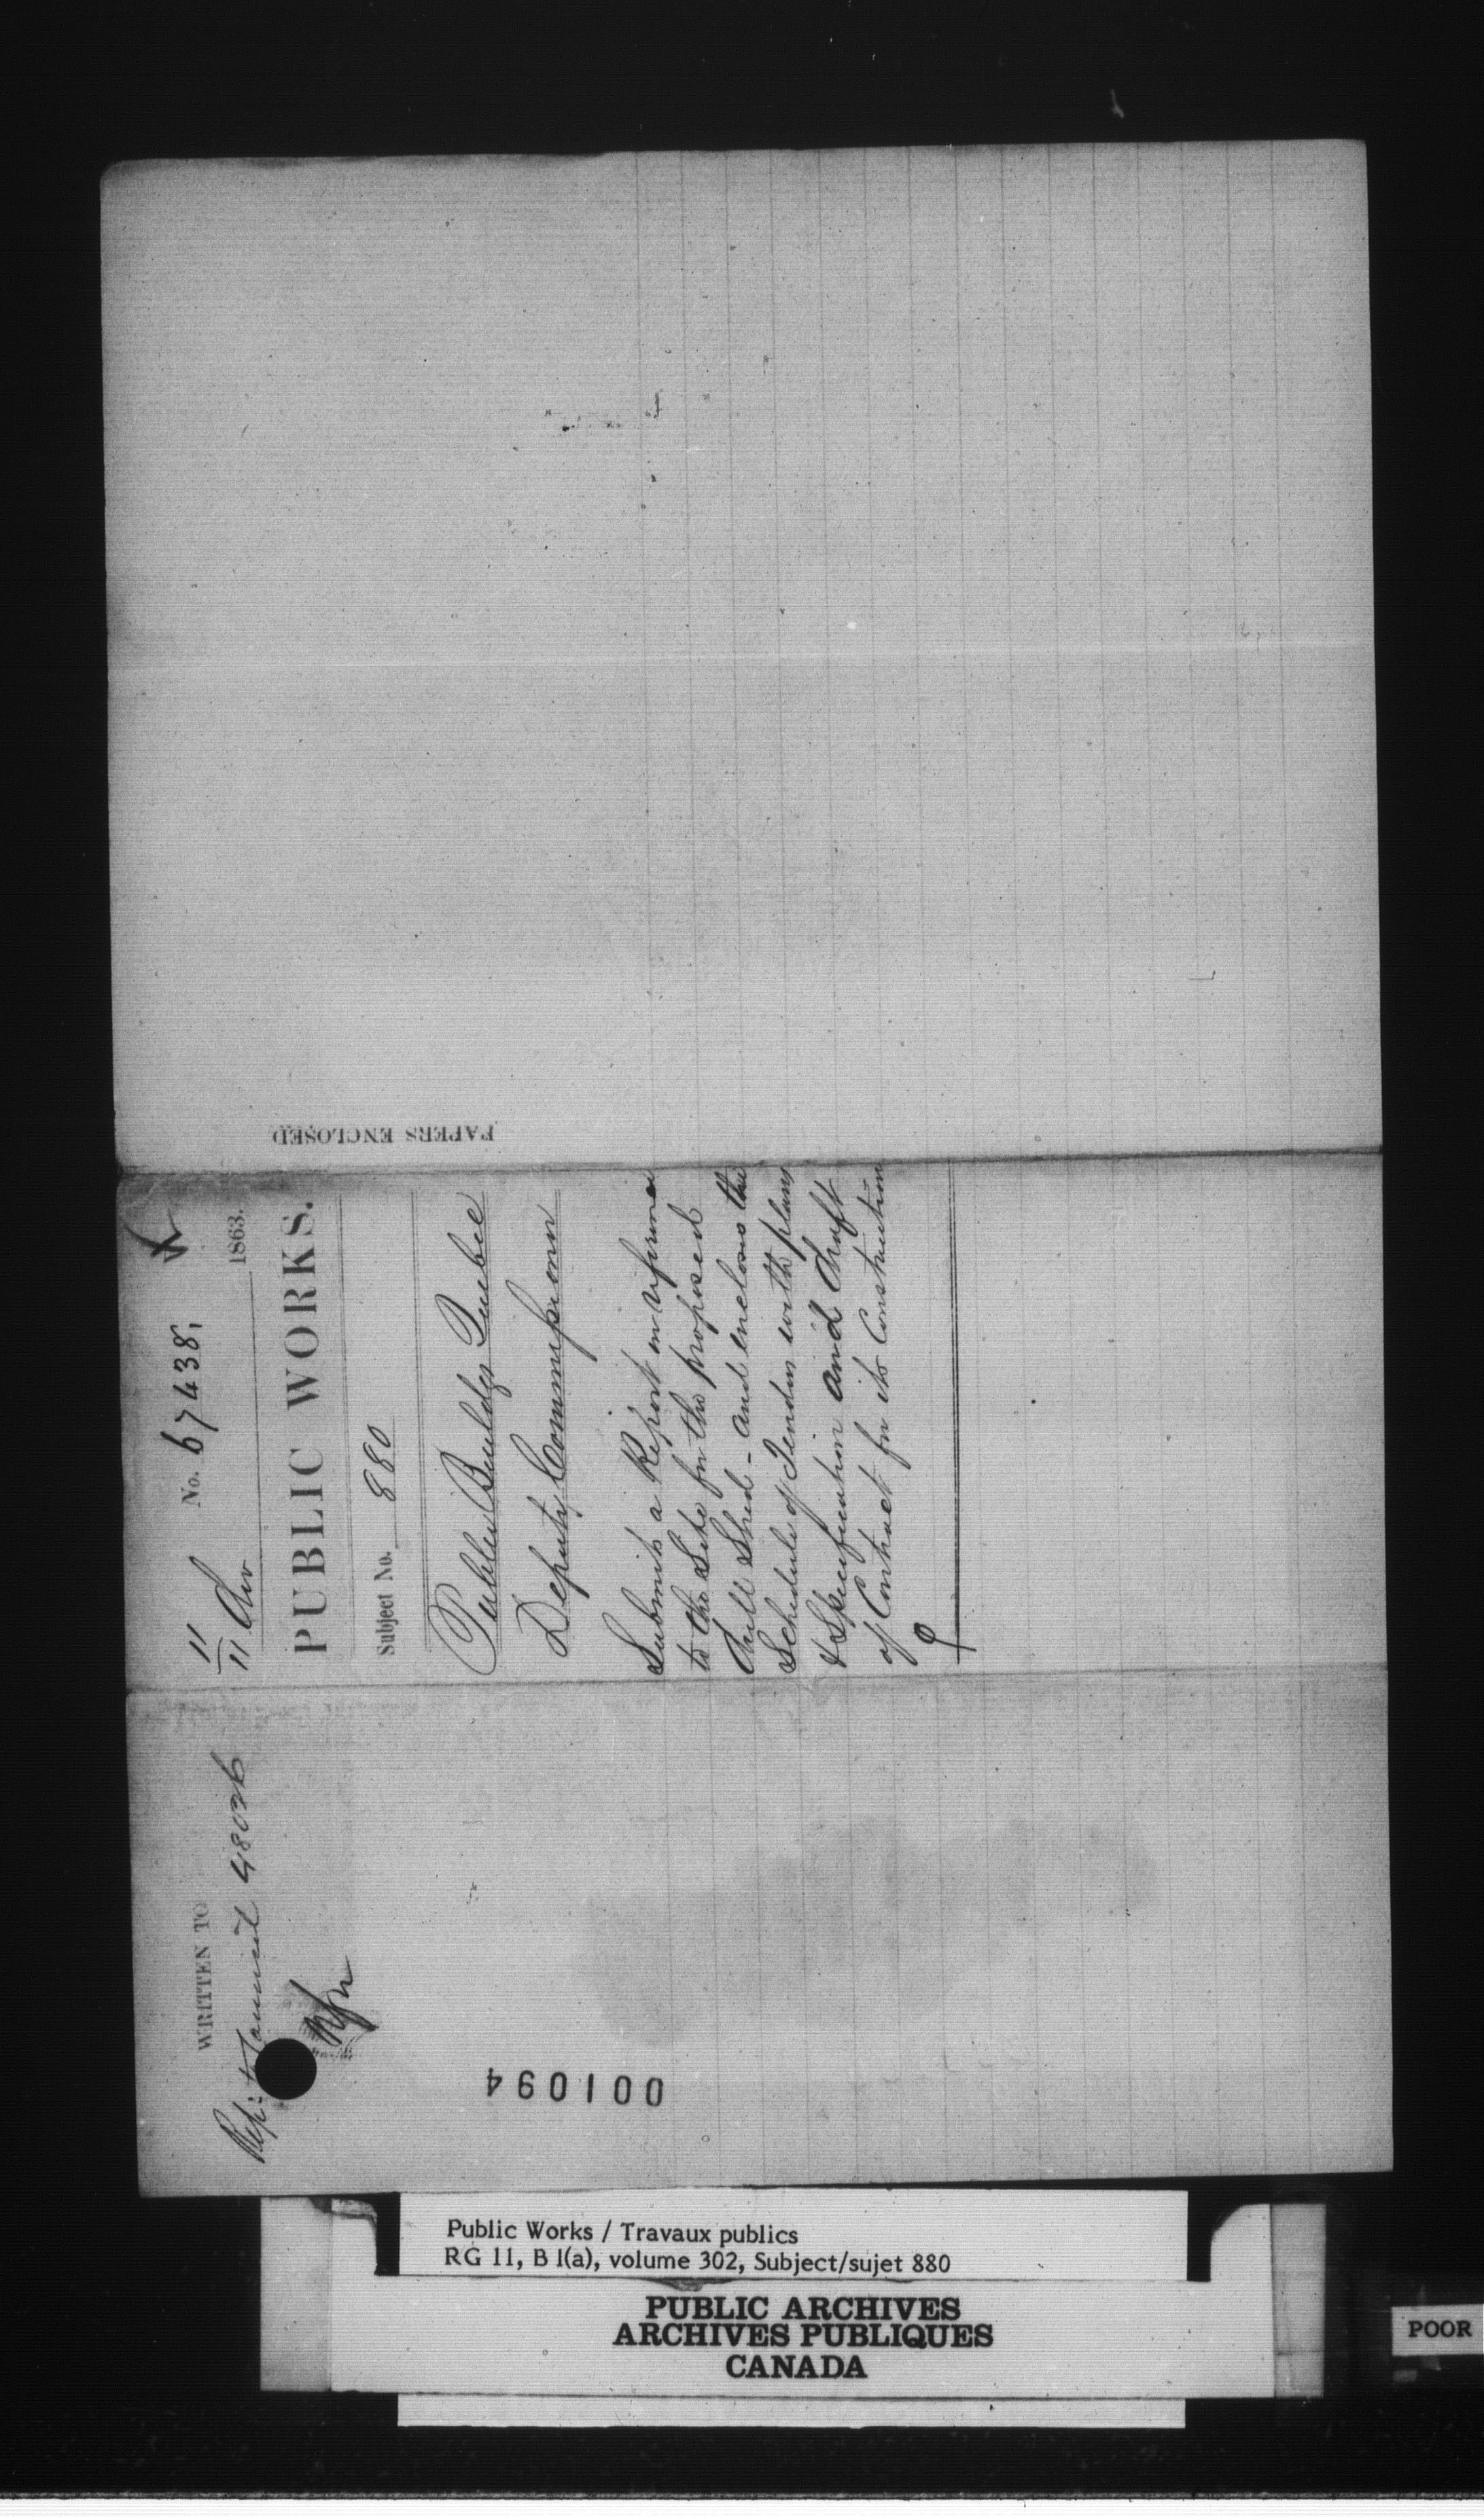 No. 67438,
11
11 Nov 1863.
PUBLIC WORKS.
Subject No. 880
Public Buildgs Quebec
Deputy Commissioner
Submits a Report in reference
to the Site for the proposed
Drill Shed - and encloses the
Schedule of Tenders with plans
& Specification and draft
of Contract for its Construction
PAPERS ENCLOSED
WRITTEN TO
Rep: to Council 48026
001094
Public Works / Travaux publics
RG 11, B 1(a), volume 302, Subject/sujet 880
PUBLIC ARCHIVES
ARCHIVES PUBLIQUES
CANADA
POOR